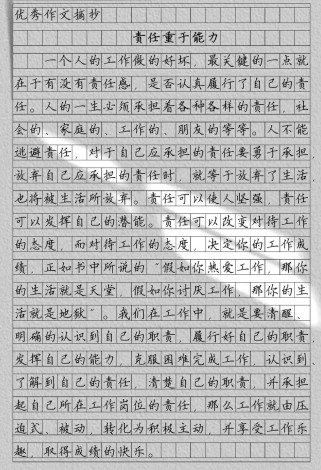 优秀作文摘抄
责任重于能力
一个人的工作做的好坏，最关健的一点就
在于有没有责任感，是否认真履行了自己的责
任。人的一生必须承担着各种各样的责任，社
会的、家庭的、工作的、朋友的等等。人不能
逃避责任，对于自己应承担的责任要勇于承担，
放弃自己应承担的责任时，就等于放弃了生活，
也将被生活所放弃。责任可以使人坚强，责任
可以发挥自己的潜能。责任可以改变对待工作
的态度，而对待工作的态度，决定你的工作成
绩，正如书中所说的“假如你热爱工作，那你
的生活就是天堂，假如你讨厌工作，那你的生
活就是地狱”。我们在工作中，就是要清醒、
明确的认识到自己的职责，履行好自己的职责，
发挥自己的能力，克服困难完成工作，认识到、
了解到自己的责任，清楚自己的职责，并承担
起自己所在工作岗位的责任，那么工作就由压
迫式、被动，转化为积极主动，并享受工作乐
趣，取得成绩的快乐。